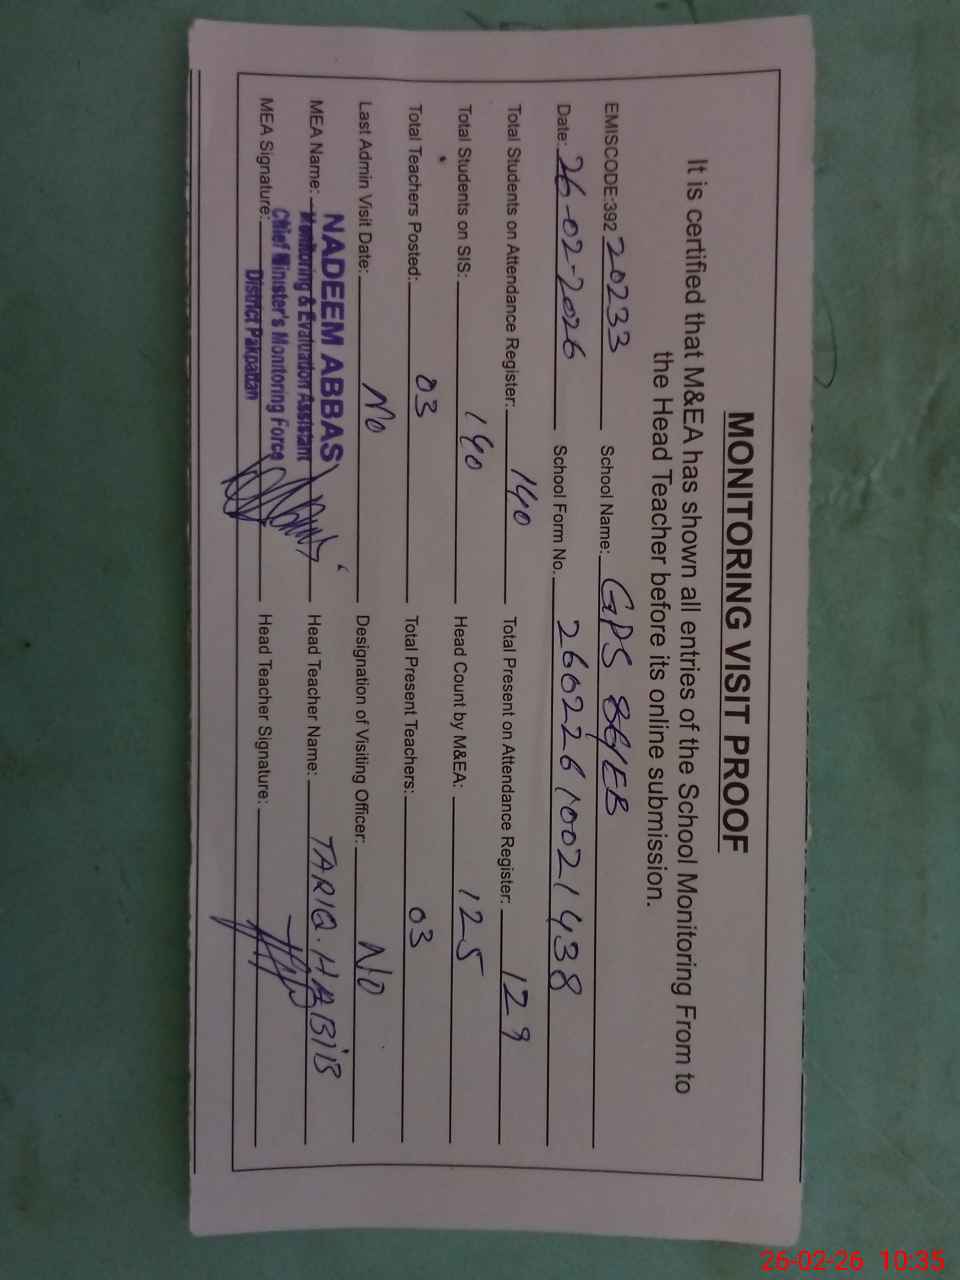 MONITORING VISIT PROOF
It is certified that M&EA has shown all entries of the School Monitoring From to
the Head Teacher before its online submission.
EMISCODE:392 20233 School Name: GPS 84/EB
Date: 26-02-2026 School Form No. 26022610021438
Total Students on Attendance Register: 140 Total Present on Attendance Register: 129
Total Students on SIS: 140 Head Count by M&EA: 125
Total Teachers Posted: 03 Total Present Teachers: 03
Last Admin Visit Date: No Designation of Visiting Officer: No
MEA Name: NADEEM ABBAS Head Teacher Name: TARIQ. HABIB
Monitoring & Evaluation Assistant
Chief Minister's Monitoring Force
District Pakpattan
MEA Signature: Head Teacher Signature:
26-02-26 10:35